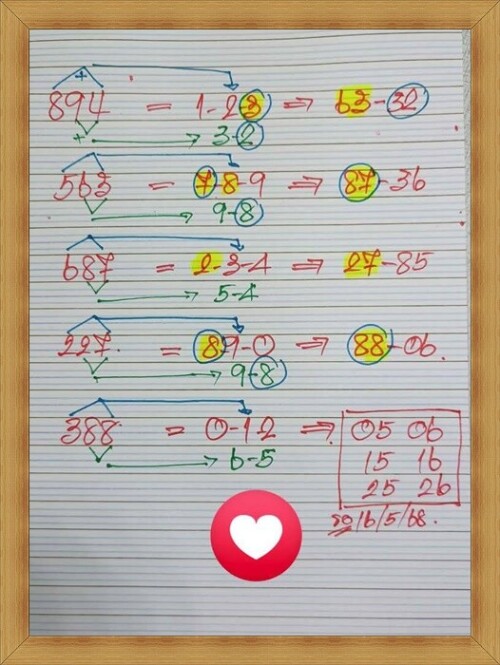 +
894 = 1-2-3 ⇒ 63-32
+ → 3-2
563 = 7-8-9 ⇒ 87-36
→ 9-8
687 = 2-3-4 ⇒ 27-85
→ 5-4
227. = 8-9-0 ⇒ 88-06.
→ 9-8
388 = 0-1-2 ⇒ 05 06
→ 6-5 15 16
25 26
16/5/68.